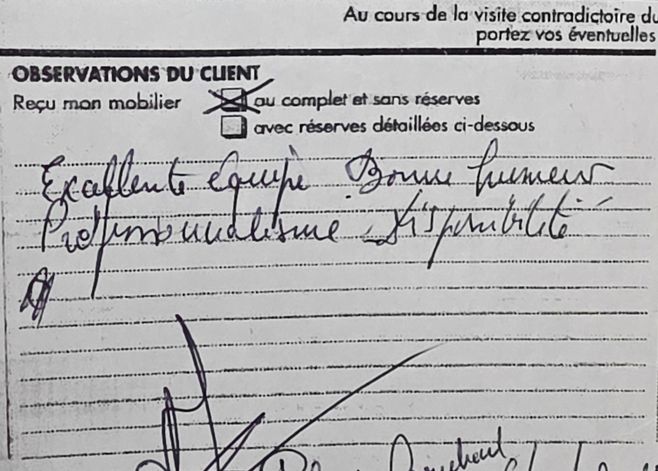 Au cours de la visite contradictoire du
portez vos éventuelles
OBSERVATIONS DU CLIENT
Reçu mon mobilier
au complet et sans réserves
avec réserves détaillées ci-dessous
Excellente équipe Bonne humeur
Professionnalisme - Disponibilité